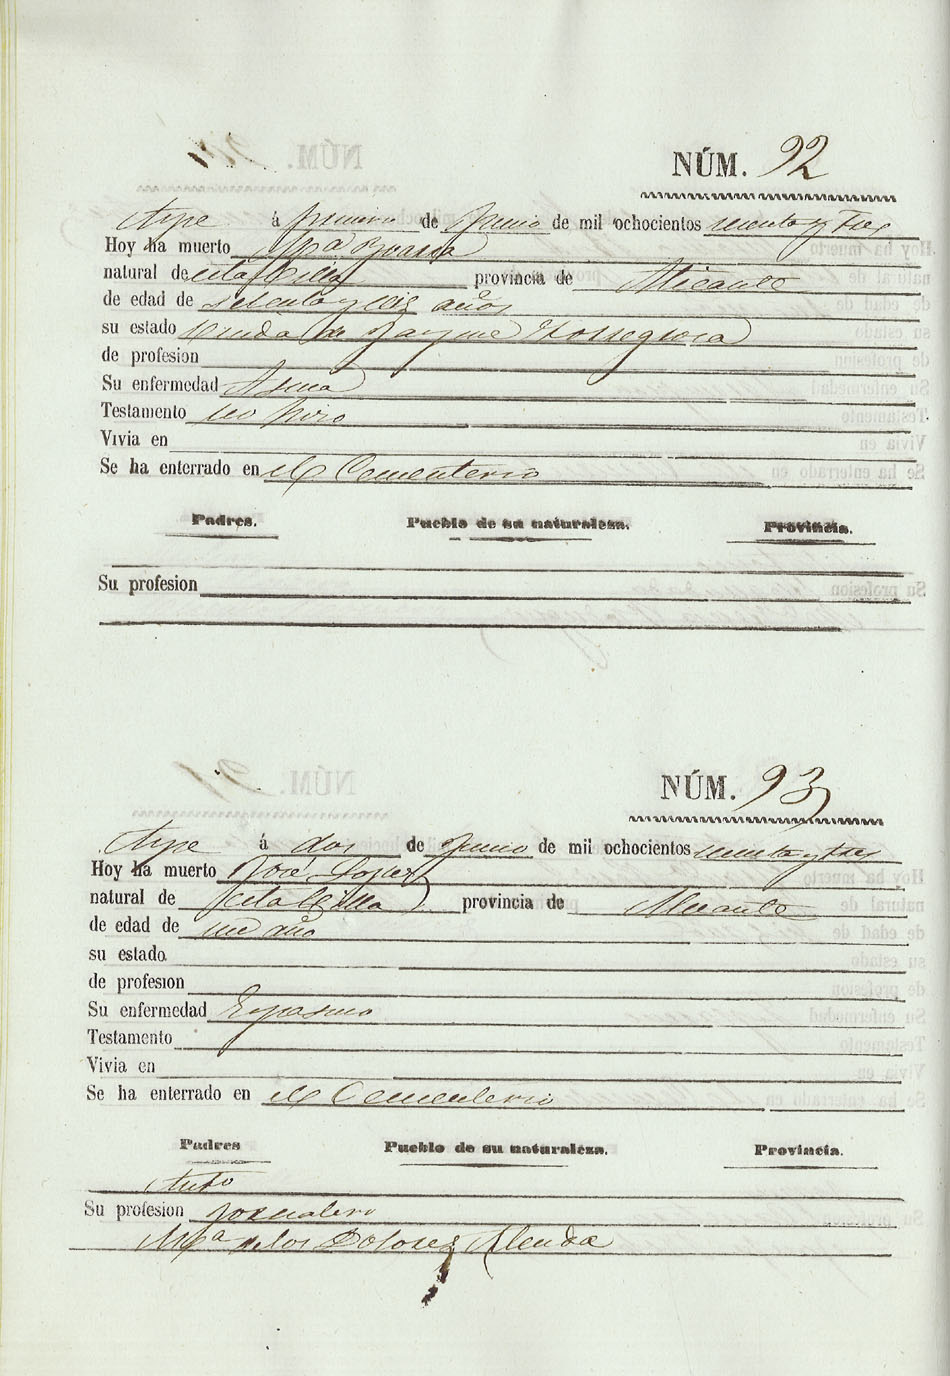 NÚM. 92
Aspe á primero de Junio de mil ochocientos sesenta y tres
Hoy ha muerto Mª
natural de esta Villa provincia de Alicante
de edad de setenta y seis años
su estado viuda de Jayme Torregrosa
de profesion
Su enfermedad Asma
Testamento no hizo
Vivia en
Se ha enterrado en el Cementerio
Padres. Pueblo de su naturaleza. Provincia.
Su profesion
NÚM. 93
Aspe á dos de Junio de mil ochocientos sesenta y tres
Hoy ha muerto José Lopez
natural de esta Villa provincia de Alicante
de edad de un año
su estado
de profesion
Su enfermedad Espasmo
Testamento
Vivia en
Se ha enterrado en el Cementerio
Padres Pueblo de su naturaleza. Provincia.
Antº
Su profesion Jornalero
Mª de los Dolores Alenda